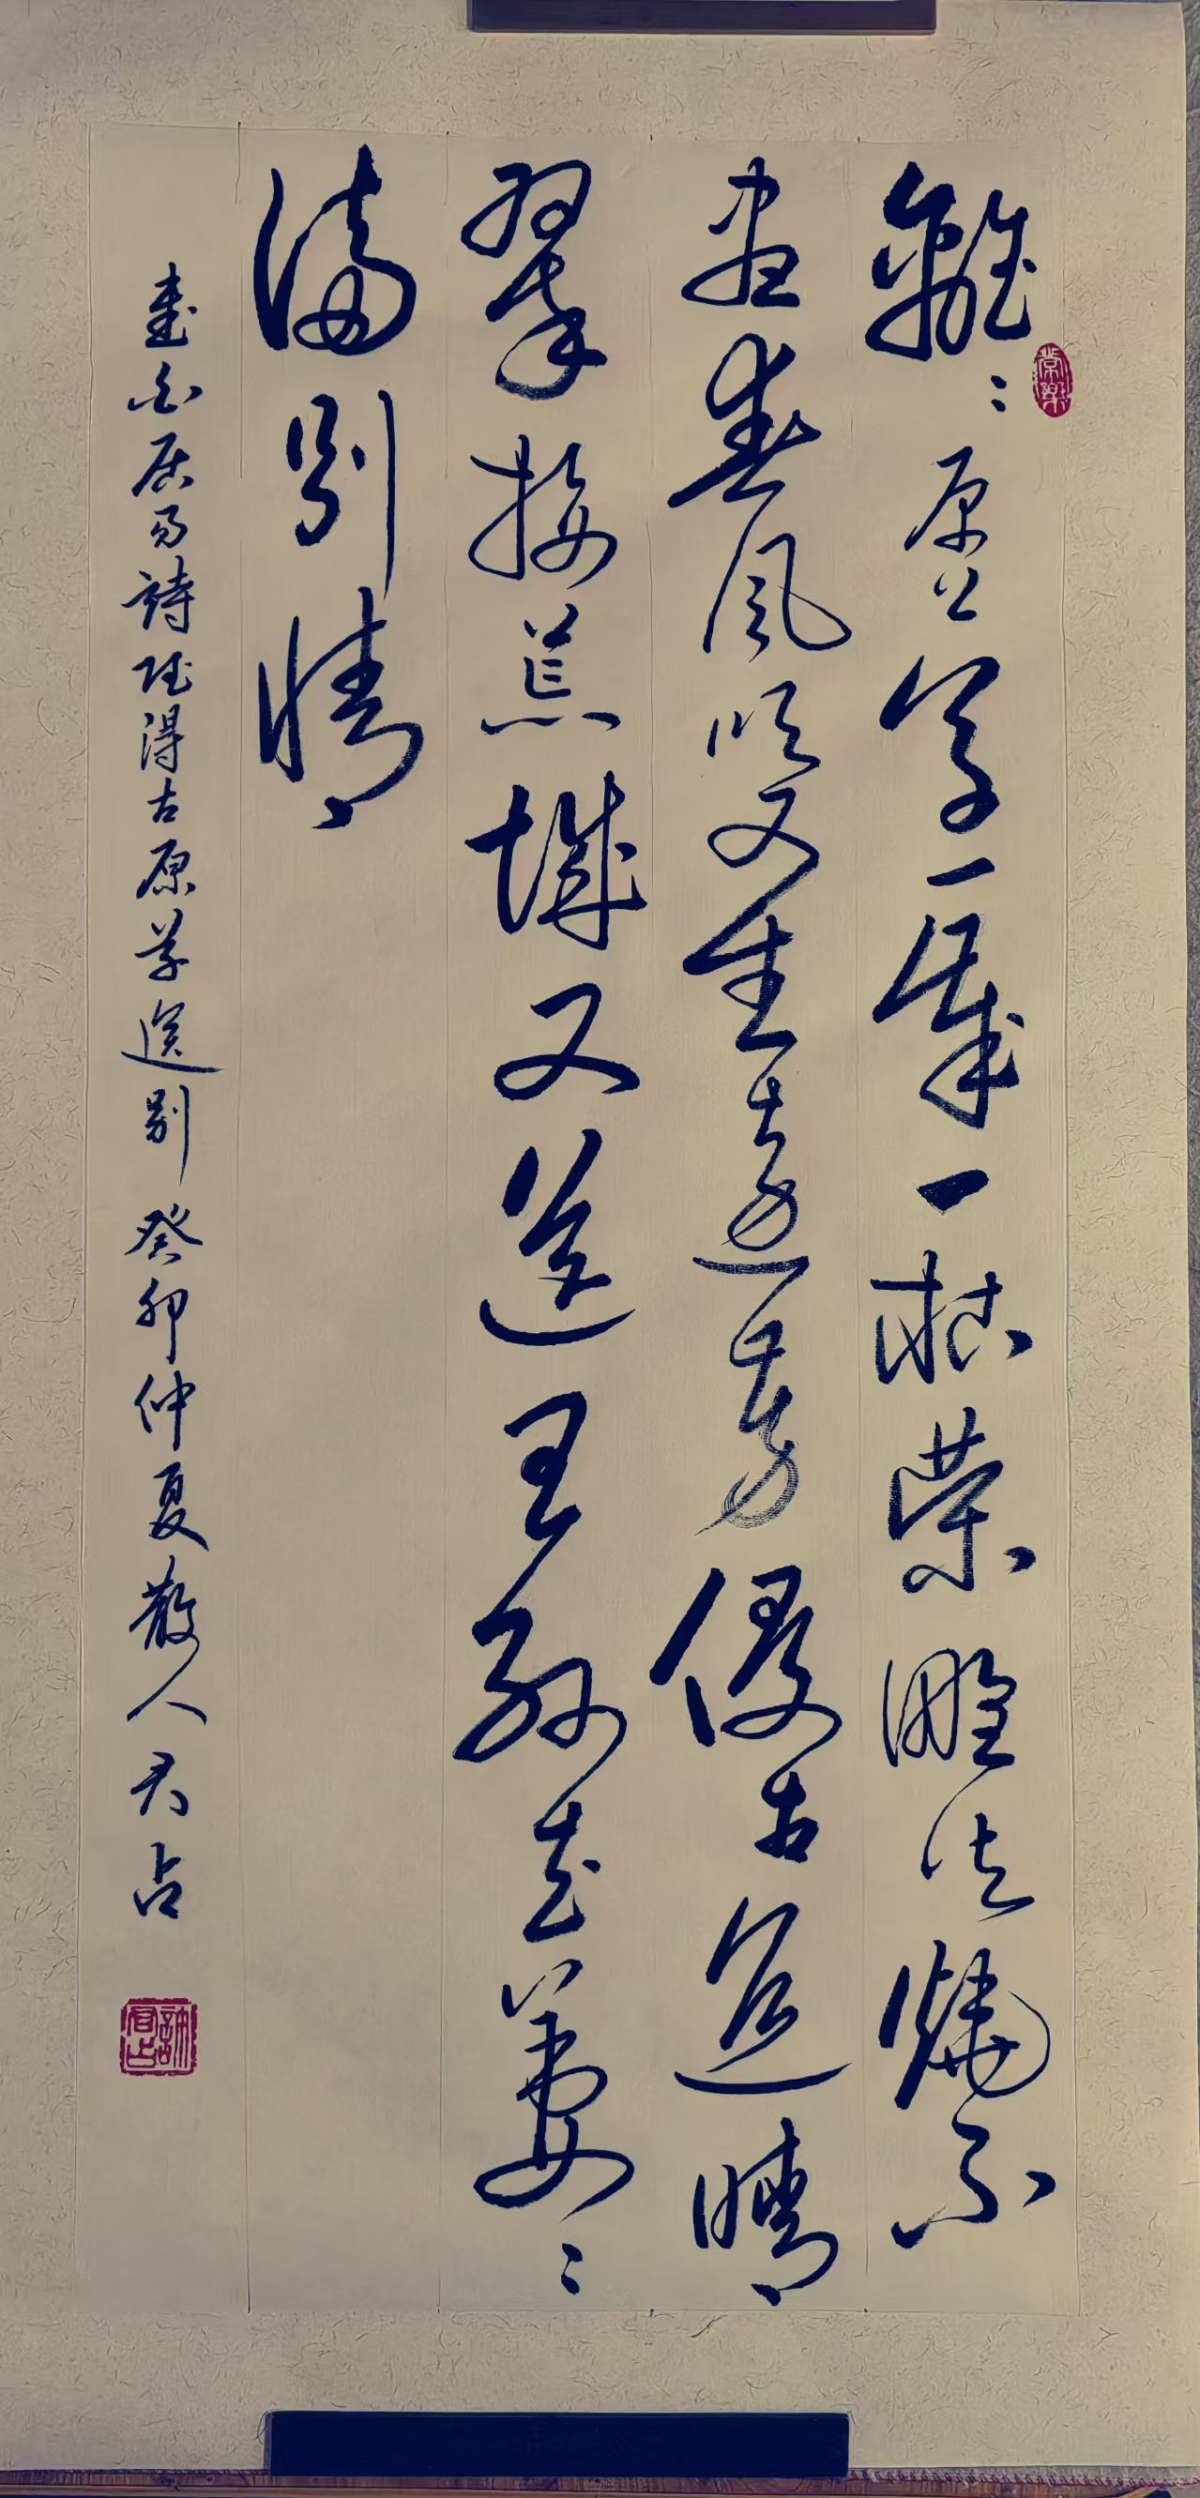 離〻原上草一歲一枯榮野火燒不
盡春風吹又生遠芳侵古道晴
翠接荒城又送王孫去萋〻
滿別情
書白居易詩賦得古原草送別 癸卯仲夏散人君占
常樂